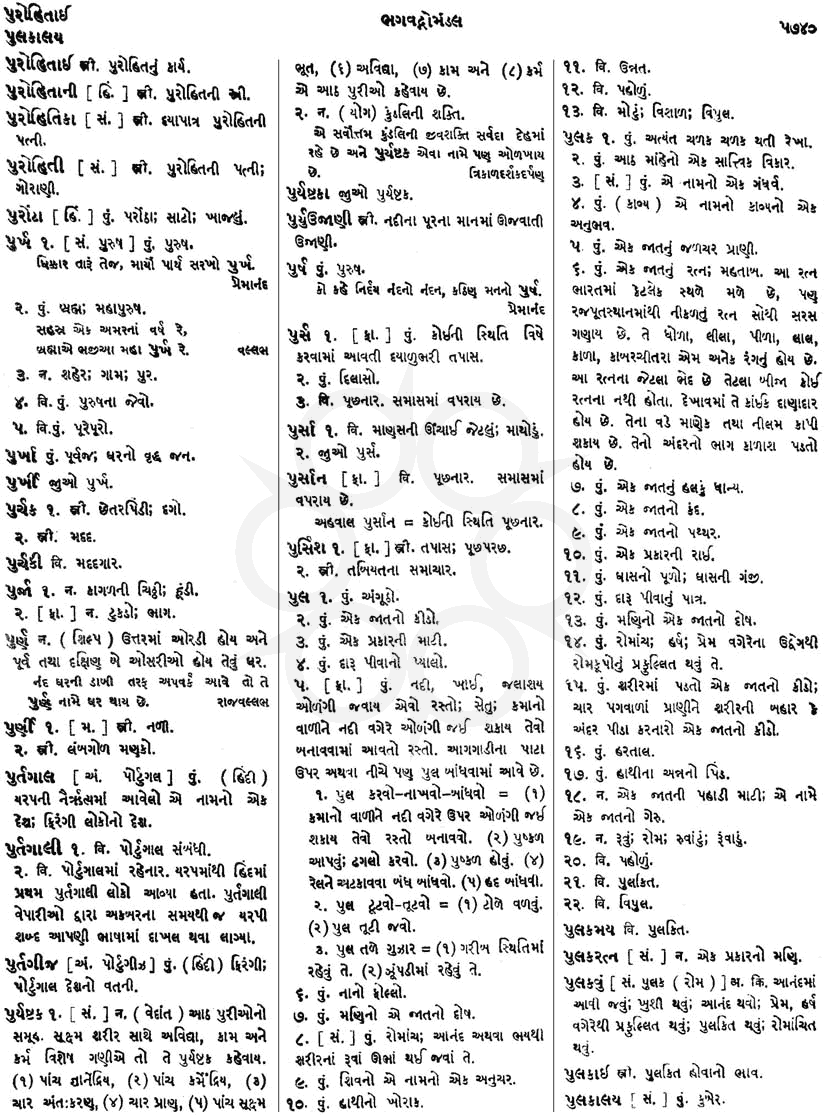 પુરોહિતાઈ
પુલકાલય
ભગવદ્ગોમંડલ
૫૭૪૦
પુરોહિતાઈ સ્ત્રી. પુરોહિતનું કાર્ય.
પુરોહિતાની [ હિં. ] સ્ત્રી. પુરોહિતની સ્ત્રી.
પુરોહિતિકા [ સં. ] સ્ત્રી. દયાપાત્ર પુરોહિતની
પત્ની.
પુરોહિતી [ સં. ] સ્ત્રી. પુરોહિતની પત્ની;
ગોરાણી.
પુરોંટા [ હિં. ] પું. પરોંઠા; સાટો; ખાજલું.
પુર્ખ ૧. [ સં. પુરુષ ] પું. પુરુષ.
ધિક્કાર તારૂં તેજ, માર્યો પાર્થ સરખો પુર્ખ.
પ્રેમાનંદ
૨. પું. બ્રહ્મ; મહાપુરુષ.
સહસ્ર એક અમરનાં વર્ષ રે,
બ્રહ્માએ ભજીઆ મહા પુર્ખ રે. વલ્લભ
૩. ન. શહેર; ગામ; પુર.
૪. વિ. પું. પુરુષના જેવો.
૫. વિ. પું. પૂરેપૂરો.
પુર્ખા પું. પૂર્વજ; ઘરનો વૃદ્ધ જન.
પુર્ખી જુઓ પુર્ખ.
પુર્ચક ૧. સ્ત્રી. છેતરપિંડી; દગો.
૨. સ્ત્રી. મદદ.
પુર્ચકી વિ. મદદગાર.
પુર્જા ૧. ન. કાગળની ચિઠ્ઠી; હૂંડી.
૨. [ ફા. ] ન. ટુકડો; ભાગ.
પુર્ણુ ન. ( શિલ્પ ) ઉત્તરમાં ઓરડી હોય અને
પૂર્વ તથા દક્ષિણ બે ઓસરીઓ હોય તેવું ઘર.
નંદ ઘરની ડાબી તરફ અપવર્ક આવે તો તે
પુર્ણુ નામે ઘર થાય છે. રાજવલ્લભ
પુર્ણી ૧. [ મ. ] સ્ત્રી. નળી.
૨. સ્ત્રી. લંબગોળ મણકો.
પુર્તગાલ [ અં. પોર્ટુગલ ] પું. ( હિંદી )
યરપની નૈર્ઋત્યમાં આવેલો એ નામનો એક
દેશ; ફિરંગી લોકોનો દેશ.
પુર્તગાલી ૧. વિ. પોર્ટુગાલ સંબંધી.
૨. વિ. પોર્ટુગાલમાં રહેનાર. યરપમાંથી હિંદમાં
પ્રથમ પુર્તગાલી લોકો આવ્યા હતા. પુર્તગાલી
વેપારીઓ દ્વારા અકબરના સમયથી જ યરપી
શબ્દ આપણી ભાષામાં દાખલ થવા લાગ્યા.
પુર્તગીજ [ અં. પોર્ટુગીઝ ] પું. ( હિંદી ) ફિરંગી;
પોર્ટુગાલ દેશનો વતની.
પુર્યષ્ટક ૧. [ સં. ] ન. ( વેદાંત ) આઠ પુરીઓનો
સમૂહ. સૂક્ષ્મ શરીર સાથે અવિદ્યા, કામ અને
કર્મ વિશેષ ગણીએ તો તે પુર્યષ્ટક કહેવાય.
(૧) પાંચ જ્ઞાનેંદ્રિય, (૨) પાંચ કર્મેંદ્રિય, (૩)
ચાર અંતઃકરણ, (૪) ચાર પ્રાણ, (૫) પાંચ સૂક્ષ્મ
ભૂત, (૬) અવિદ્યા, (૭) કામ અને (૮) કર્મ
એ આઠ પુરીઓ કહેવાય છે.
૨. ન. ( યોગ ) કુંડલિની શક્તિ.
એ સર્વોત્તમ કુંડલિની જીવશક્તિ સર્વદા દેહમાં
રહે છે અને પુર્યષ્ટક એવા નામે પણ ઓળખાય
છે. ત્રિકાળદર્શકદર્પણ
પુર્યષ્ટકા જુઓ પુર્યષ્ટક.
પુર્યુઉજાણી સ્ત્રી. નદીના પૂરના માનમાં ઊજવાતી
ઉજાણી.
પુર્ષ પું. પુરુષ.
કો કહે નિર્દય નંદનો નંદન, કઠિણ મનનો પુર્ષ.
પ્રેમાનંદ
પુર્સ ૧. [ ફા. ] પું. કોઈની સ્થિતિ વિષે
કરવામાં આવતી દયાળુભરી તપાસ.
૨. પું. દિલાસો.
૩. વિ. પૂછનાર. સમાસમાં વપરાય છે.
પુર્સા ૧. વિ. માણસની ઊંચાઈ જેટલું; માથોડું.
૨. જુઓ પુર્સ.
પુર્સાન [ ફા. ] વિ. પૂછનાર. સમાસમાં
વપરાય છે.
અહવાલ પુર્સાન = કોઈની સ્થિતિ પૂછનાર.
પુર્સિશ ૧. [ ફા. ] સ્ત્રી. તપાસ; પૂછપરછ.
૨. સ્ત્રી. તબિયતના સમાચાર.
પુલ ૧. પું. અંગૂઠો.
૨. પું. એક જાતનો કીડો.
૩. પું. એક પ્રકારની માટી.
૪. પું. દારૂ પીવાનો પ્યાલો.
૫. [ ફા. ] પું. નદી, ખાઈ, જલાશય
ઓળંગી જવાય એવો રસ્તો; સેતુ; કમાનો
વાળીને નદી વગેરે ઓળંગી જઈ શકાય તેવો
બનાવવામાં આવતો રસ્તો. આગગાડીના પાટા
ઉપર અથવા નીચે પણ પુલ બાંધવામાં આવે છે.
૧. પુલ કરવો-નાખવો-બાંધવો = (૧)
કમાનો વાળીને નદી વગેરે ઉપર ઓળંગી જઈ
શકાય તેવો રસ્તો બનાવવો. (૨) પુષ્કળ
આપવું; ઢગલો કરવો. (૩) પુષ્કળ હોવું. (૪)
રેલને અટકાવવા બંધ બાંધવો. (૫) હદ બાંધવી.
૨. પુલ ટૂટવો-તૂટવો = (૧) ટોળે વળવું.
(૨) પુલ તૂટી જવો.
૩. પુલ તળે ગુઝાર = (૧) ગરીબ સ્થિતિમાં
રહેવું તે. (૨) ઝૂંપડીમાં રહેવું તે.
૬. પું. નાનો ફોલ્લો.
૭. પું. મણિનો એ જાતનો દોષ.
૮. [ સં. ] પું. રોમાંચ; આનંદ અથવા ભયથી
શરીરનાં રૂંવાં ઊભાં થઈ જવાં તે.
૯. પું. શિવનો એ નામનો એક અનુચર.
૧૦. પું. હાથીનો ખોરાક.
૧૧. વિ. ઉન્નત.
૧૨. વિ. પહોળું.
૧૩. વિ. મોટું; વિશાળ; વિપુલ.
પુલક ૧. પું. અત્યંત ચળક ચળક થતી રેખા.
૨. પું. આઠ માંહેનો એક સાત્ત્વિક વિકાર.
૩. [ સં. ] પું. એ નામનો એક ગંધર્વ.
૪. પું. ( કાવ્ય ) એ નામનો કાવ્યનો એક
અનુભવ.
૫. પું. એક જાતનું જળચર પ્રાણી.
૬. પું. એક જાતનું રત્ન; મહતાબ. આ રત્ન
ભારતમાં કેટલેક સ્થળે મળે છે, પણ
રજપૂતસ્થાનમાંથી નીકળતું રત્ન સૌથી સરસ
ગણાય છે. તે ધોળા, લીલા, પીળા, લાલ,
કાળા, કાબરચીતરા એમ અનેક રંગનું હોય છે.
આ રત્નના જેટલા ભેદ છે તેટલા બીજા કોઈ
રત્નના નથી હોતા. દેખાવમાં તે કાંઈક દાણાદાર
હોય છે. તેના વડે માણેક તથા નીલમ કાપી
શકાય છે. તેનો અંદરનો ભાગ કાળાશ પડતો
હોય છે.
૭. પું. એક જાતનું હલકું ધાન્ય.
૮. પું. એક જાતનો કંદ.
૯. પું. એક જાતનો પથ્થર.
૧૦. પું. એક પ્રકારની રાઈ.
૧૧. પું. ઘાસનો પૂળો; ઘાસની ગંજી.
૧૨. પું. દારૂ પીવાનું પાત્ર.
૧૩. પું. મણિનો એક જાતનો દોષ.
૧૪. પું. રોમાંચ; હર્ષ; પ્રેમ વગેરેના ઉદ્વેગથી
રોમકૂપોનું પ્રફુલ્લિત થવું તે.
૧૫. પું. શરીરમાં પડતો એક જાતનો કીડો;
ચાર પગવાળાં પ્રાણીને શરીરની બહાર કે
અંદર પીડા કરનારો એક જાતનો કીડો.
૧૬. પું. હરતાલ.
૧૭. પું. હાથીના અન્નનો પિંડ.
૧૮. ન. એક જાતની પહાડી માટી; એ નામે
એક જાતનો ગેરુ.
૧૯. ન. રૂવું; રોમ; રુવાંટું; રૂંવાડું.
૨૦. વિ. પહોળું.
૨૧. વિ. પુલકિત.
૨૨. વિ. વિપુલ.
પુલકમય વિ. પુલકિત.
પુલકરત્ન [ સં. ] ન. એક પ્રકારનો મણિ.
પુલકવું [ સં. પુલક ( રોમ ) ] અ. ક્રિ. આનંદમાં
આવી જવું; ખુશી થવું; આનંદ થવો; પ્રેમ, હર્ષ
વગેરેથી પ્રફુલ્લિત થવું; પુલકિત થવું; રોમાંચિત
થવું.
પુલકાઈ સ્ત્રી. પુલકિત હોવાનો ભાવ.
પુલકાલય [ સં. ] પું. કુબેર.